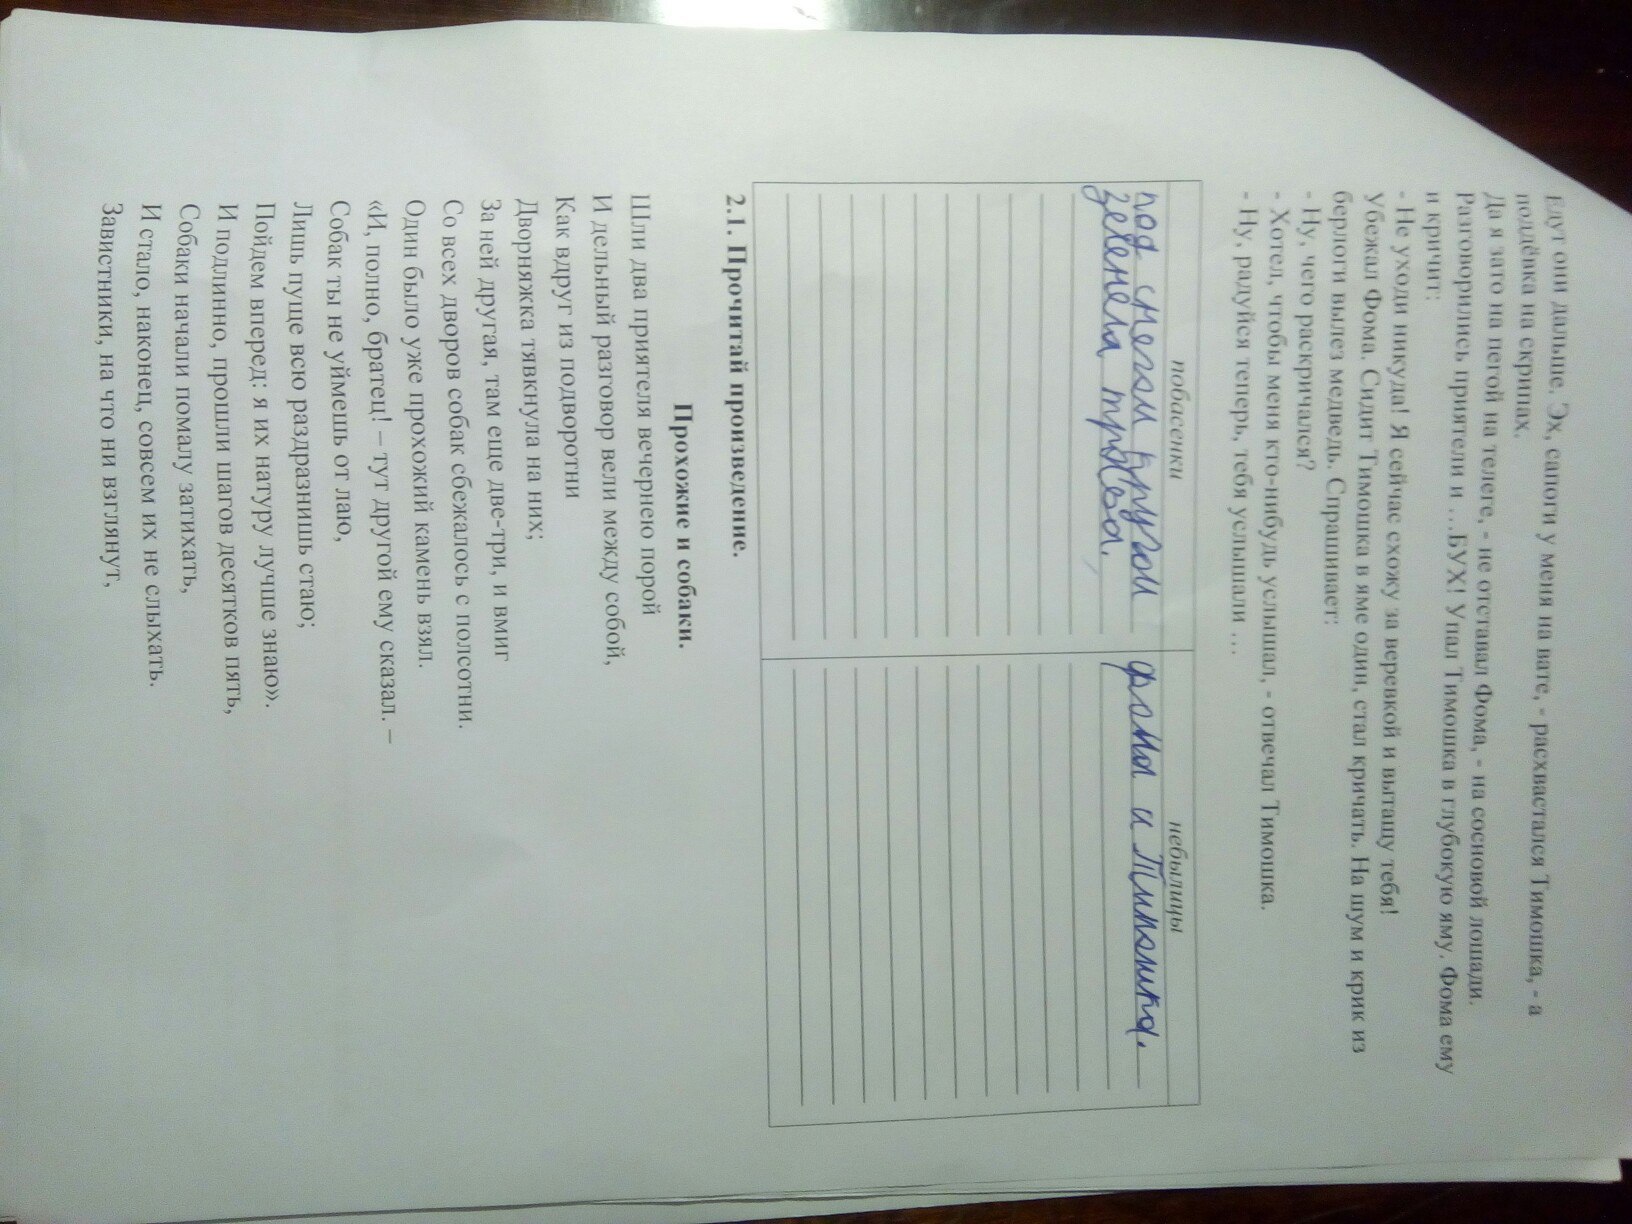 Едут они дальше. Эх, сапоги у меня на вате, - расхвастался Тимошка, - а
поддёвка на скрипах.
Да я зато на пегой на телеге, - не отставал Фома, - на сосновой лошади.
Разговорились приятели и …БУХ! Упал Тимошка в глубокую яму. Фома ему
и кричит:
- Не уходи никуда! Я сейчас схожу за веревкой и вытащу тебя!
Убежал Фома. Сидит Тимошка в яме один, стал кричать. На шум и крик из
берлоги вылез медведь. Спрашивает:
- Ну, чего раскричался?
- Хотел, чтобы меня кто-нибудь услышал, - отвечал Тимошка.
- Ну, радуйся теперь, тебя услышали …
побасенки небылицы
под снегом кругом фома и Тимошка.
зеленела трава.
2.1. Прочитай произведение.
Прохожие и собаки.
Шли два приятеля вечернею порой
И дельный разговор вели между собой,
Как вдруг из подворотни
Дворняжка тявкнула на них;
За ней другая, там еще две-три, и вмиг
Со всех дворов собак сбежалось с полсотни.
Один было уже прохожий камень взял.
«И, полно, братец! – тут другой ему сказал. –
Собак ты не уймешь от лаю,
Лишь пуще всю раздразнишь стаю;
Пойдем вперед: я их натуру лучше знаю».
И подлинно, прошли шагов десятков пять,
Собаки начали помалу затихать,
И стало, наконец, совсем их не слыхать.
Завистники, на что ни взглянут,